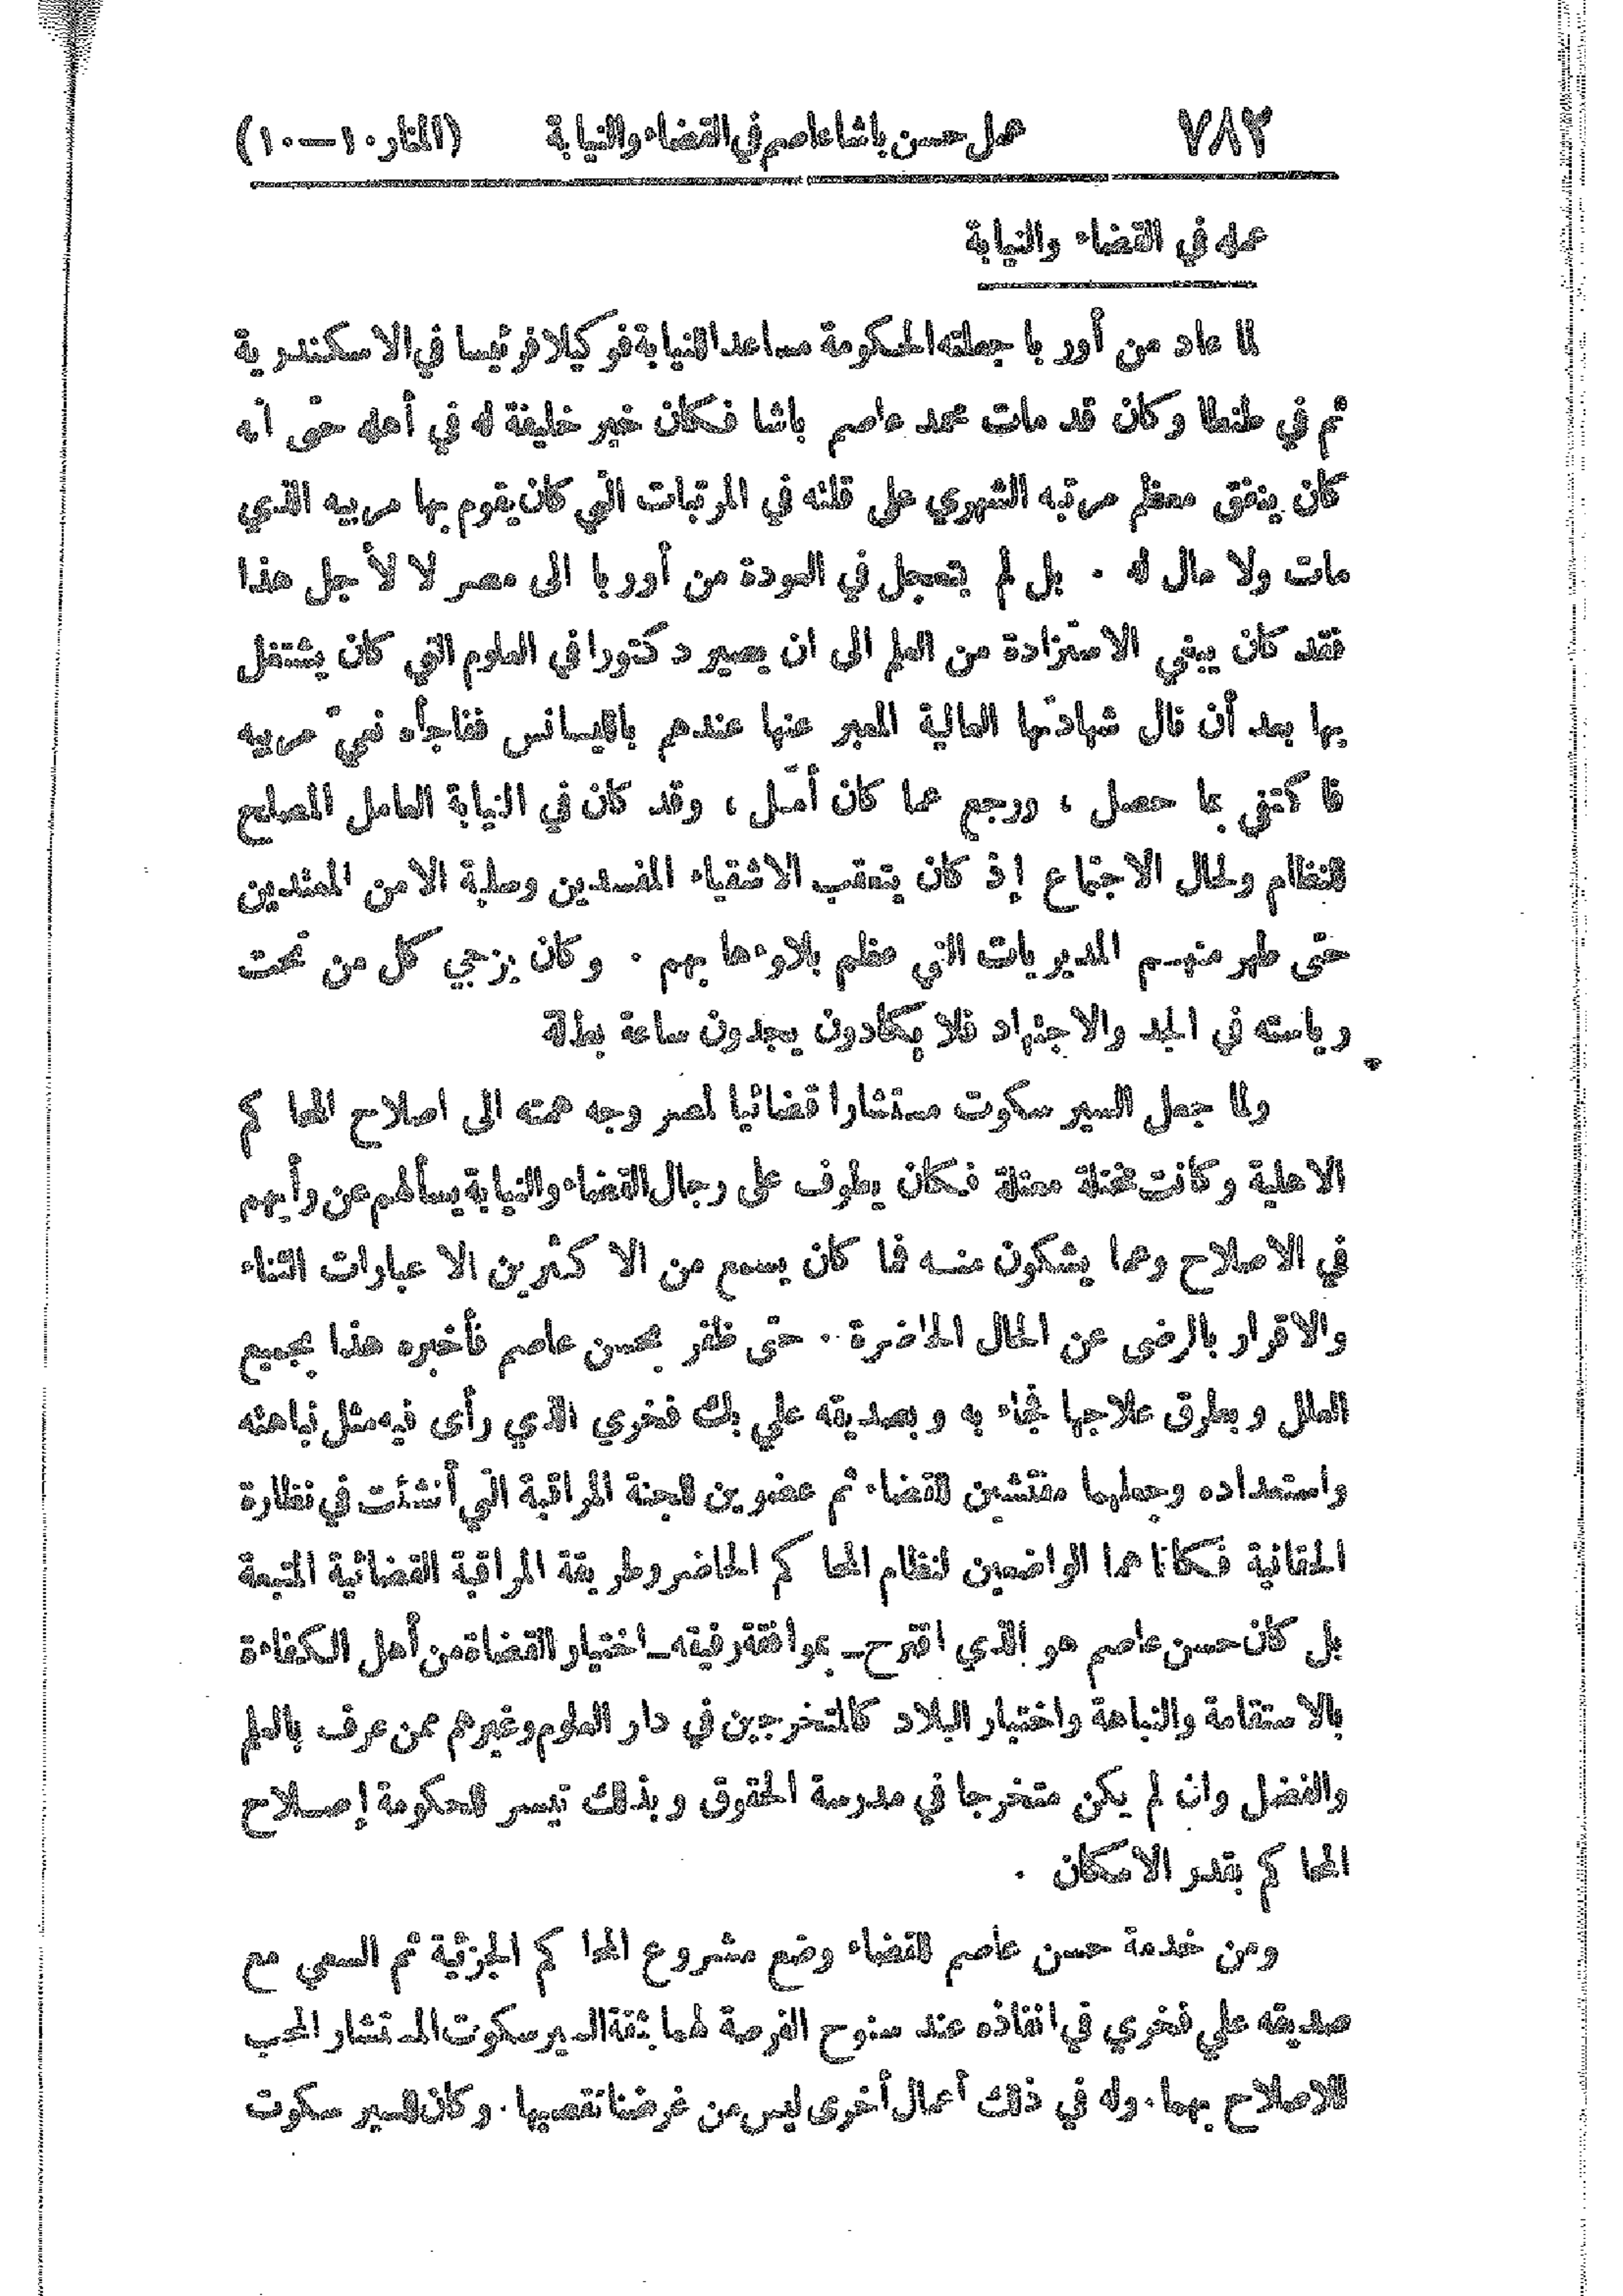 ٧٨٢ عمل حسن باشا عاصم في القضاء والنيابة (المنار ١٠ — ١٠)
عمله في القضاء والنيابة
لما عاد من أوربا جعلته الحكومة مساعدا للنيابة فوكيلا فرئيسا في الاسكندرية
ثم في طنطا وكان قد مات محمد عاصم باشا فكان خير خليفة له في أهله حتى أنه
كان ينفق معظم مرتبه الشهري على قلته في المرتبات التي كان يقوم بها مربيه الذي
مات ولا مال له . بل لم يتعجل في العودة من أوربا الى مصر لا لأجل هذا
فقد كان يبغي الاستزادة من العلم الى ان يصير دكتورا في العلوم التي كان يشتغل
بها بعد أن نال شهادتها العالية المعبر عنها عندهم بالليسانس ففاجأه نعيّ مربيه
فاكتفى بما حصل ، ورجع عما كان أمّل ، وقد كان في النيابة العامل المصلح
للنظام ولحال الاجتماع إذ كان يتعقب الاشقياء المفسدين وسلبة الامن المعتدين
حتى طهر منهم المديريات التي عظم بلاؤها بهم . وكان يزجي كل من تحت
رياسته في الجد والاجتهاد فلا يكادون يجدون ساعة بطالة
ولما جعل السير سكوت مستشارا قضائيا لمصر وجه همته الى اصلاح المحاكم
الاهلية وكانت مختلة معتلة فكان يطوف على رجال القضاء والنيابة يسألهم عن رأيهم
في الاصلاح وعما يشكون منه فما كان يسمع من الاكثرين الا عبارات الثناء
والاقرار بالرضى عن الحال الحاضرة . حتى ظفر بحسن عاصم فأخبره هذا بجميع
العلل وبطرق علاجها فجاء به وبصديقه علي بك فخري الذي رأى فيه مثل نباهته
واستعداده وجعلهما مفتشين للقضاء ثم عضوين للجنة المراقبة التي أنشئت في نظارة
الحقانية فكانا هما الواضعين لنظام المحاكم الحاضر وطريقة المراقبة القضائية المتبعة
بل كان حسن عاصم هو الذي اقترح ـ بموافقة رفيقه ـ اختيار القضاة من أهل الكفاءة
بالاستقامة والنباهة واختبار البلاد كالمتخرجين في دار العلوم وغيرهم ممن عرف بالعلم
والفضل وان لم يكن متخرجا في مدرسة الحقوق وبذلك تيسر للحكومة إصلاح
المحاكم بقدر الامكان .
ومن خدمة حسن عاصم للقضاء وضع مشروع المحاكم الجزئية ثم السعي مع
صديقه علي فخري في انفاذه عند سنوح الفرصة لهما بثقة السير سكوت المستشار المحب
للاصلاح بهما . وله في ذلك أعمال أخرى ليس من غرضنا تقصيها . وكان للسير سكوت